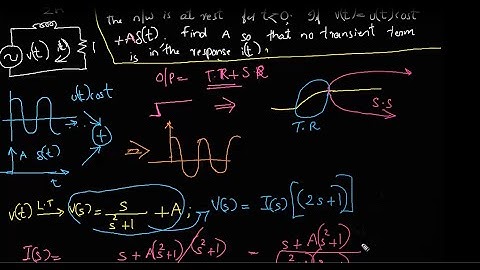 2H
The n/w is at rest for t<0. If v(t)=u(t)cost
+Aδ(t). find A so that no transient term
is in the response i(t).
v(t) i(t) 1
O/P = T.R + S.R
u(t)cost
S.S
T.R
A δ(t)
t
v(t) L.T → V(s) = s/(s²+1) + A ; V(s) = I(s)[(2s+1)]
I(s) = s+A(s²+1)/(s²+1) = s+A(s²+1)